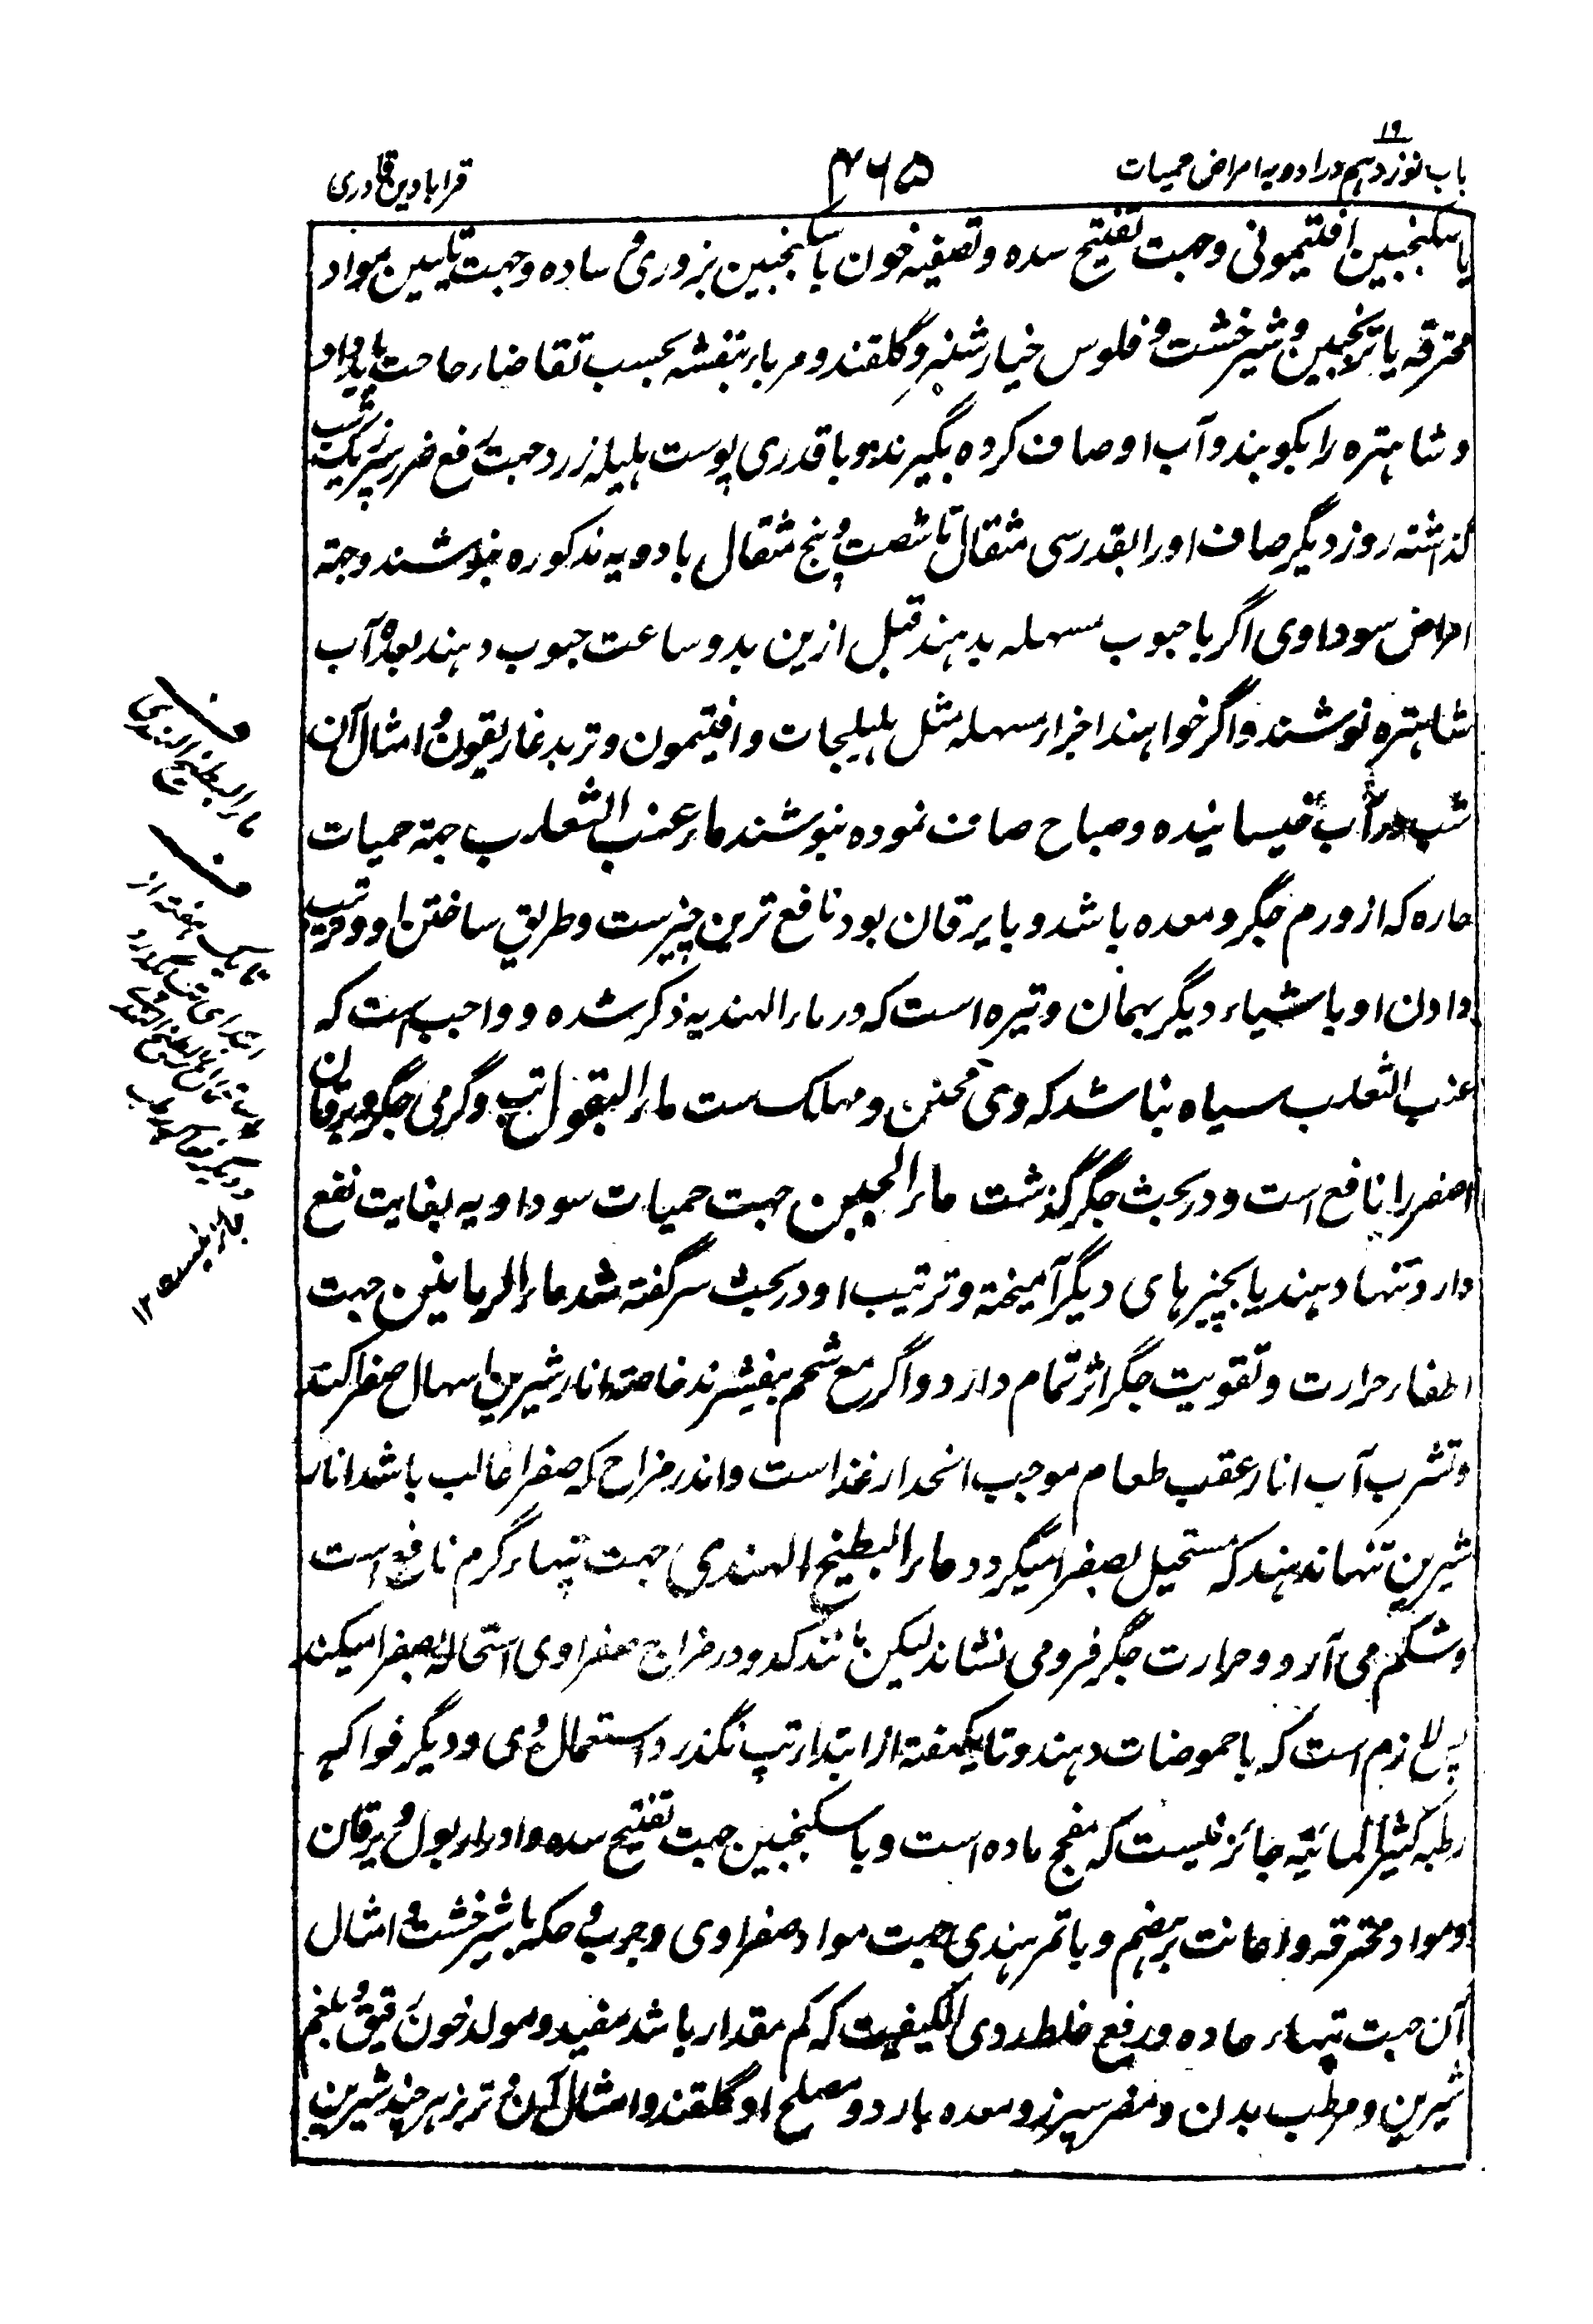 ۱۹
باب نوزدهم در ادویه امراض حمیات
۴۶۵
قرابادین قادری
یا سکنجبین افتیمونی وجهت تفتیح سده و تصفیه خون با سکنجبین بزوری و ساده وجهت تلیین مواد
محترقه با ترنجبین و شیرخشت و فلوس خیارشنبر و گلقند و مرباء بنفشه بحسب تقاضاء حاجت باید داد
و شاهتره را بکوبند و آب او صاف کرده بگیرند و با قدری پوست هلیله زرد جهت رفع ضرر سپرز یک شب
گذاشته روز دیگر صاف او را بقدر سی مثقال تا شصت و پنج مثقال با دویه مذکوره بنوشند وجهة
امراض سوداوی اگر با حبوب مسهله بدهند قبل ازین بدو ساعت حبوب دهند بعده آب
شاهتره نوشند و اگر خواهند اجزاء مسهله مثل هلیلجات و افتیمون و تربد غاریقون و امثال آن
شب در آب خیسانیده و صباح صاف نموده بنوشند ماء عنب الثعلب جهة حمیات
حاره که از ورم جگر و معده باشد و با یرقان بود نافع ترین چیزست و طریق ساختن او و ترتیب
دادن او با شیاء دیگر بهمان وتیره است که در ماء الهندیه ذکر شده و واجب است که
عنب الثعلب سیاه نباشد که وی مجنن و مهلک ست ماء البقول تپ و گرمی جگر و یرقان
اصفر را نافع است و در بحث جگر گذشت ماء الجبن جهت حمیات سوداویه بغایت نفع
دارد تنها دهند یا بچیزهای دیگر آمیخته و ترتیب او در بحث سر گفته شد ماء الرمانین جهت
اطفاء حرارت و تقویت جگر اثر تمام دارد و اگر مع شحم بفیشرند خاصة انار شیرین اسهال صفرا کند
و تشرب آب انار عقب طعام موجب انحدار غذا است و اندر مزاج که صفرا غالب باشد انار
شیرین تنها ندهند که مستحیل بصفرا میگردد ماء البطیخ الهندی جهت تپهاء گرم نافع است
و شکم می آرد و حرارت جگر فرو می نشاند لیکن مانند کدو در مزاج صفراوی استحاله بصفرا میکند
پس لازم است که با حموضات دهند و تا یکهفته از ابتداء تپ نگذرد استعمال وی و دیگر فواکه
رطبه کثیر المائیه جائز نیست که مفجج ماده است و با سکنجبین جهت تفتیح سده و ادرار بول و یرقان
و مواد محترقه و اعانت بر هضم و با تمر هندی جهت مواد صفراوی و جرب و حکه با شیرخشت و امثال
آن جهت تپهاء حاده و رفع خلط ردی الکیفیت که کم مقدار باشد مفید و مولد خون رقیق و بلغم
شیرین و مرطب بدن و مضر سپرز و معده بارد و مصلح او گلقند و امثال آن و تربز هر چند شیرین
ماء البطیخ الهندی
تا یک هفته از
ابتدای تپ نگذرد
استعمال ماء البطیخ الهندی
و دیگر فواکه رطب
جائز نیست ۱۲